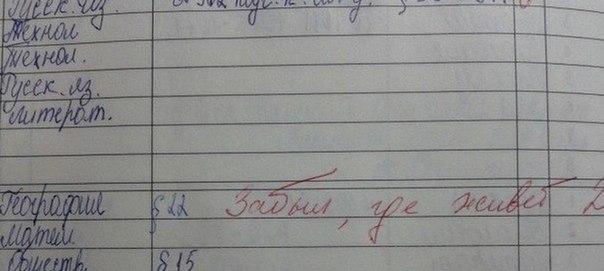 Русск. яз.
Технол
Технол.
Русск. яз.
Литерат.
География § 22 Забыл, где живёт
Матем.
Обществ. § 15